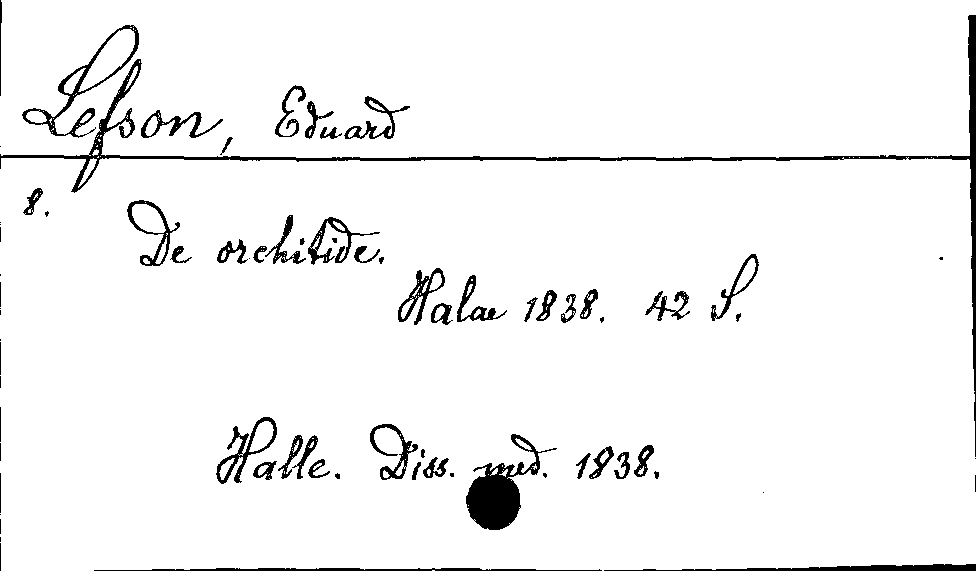 Leſson, Eduard
8.
De orchitide.
Halae 1838. 42 S.
Halle. Diss. med. 1838.